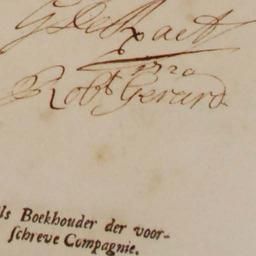 1720
Robt Gerard.
ls Boekhouder der voor-
schreve Compagnie.